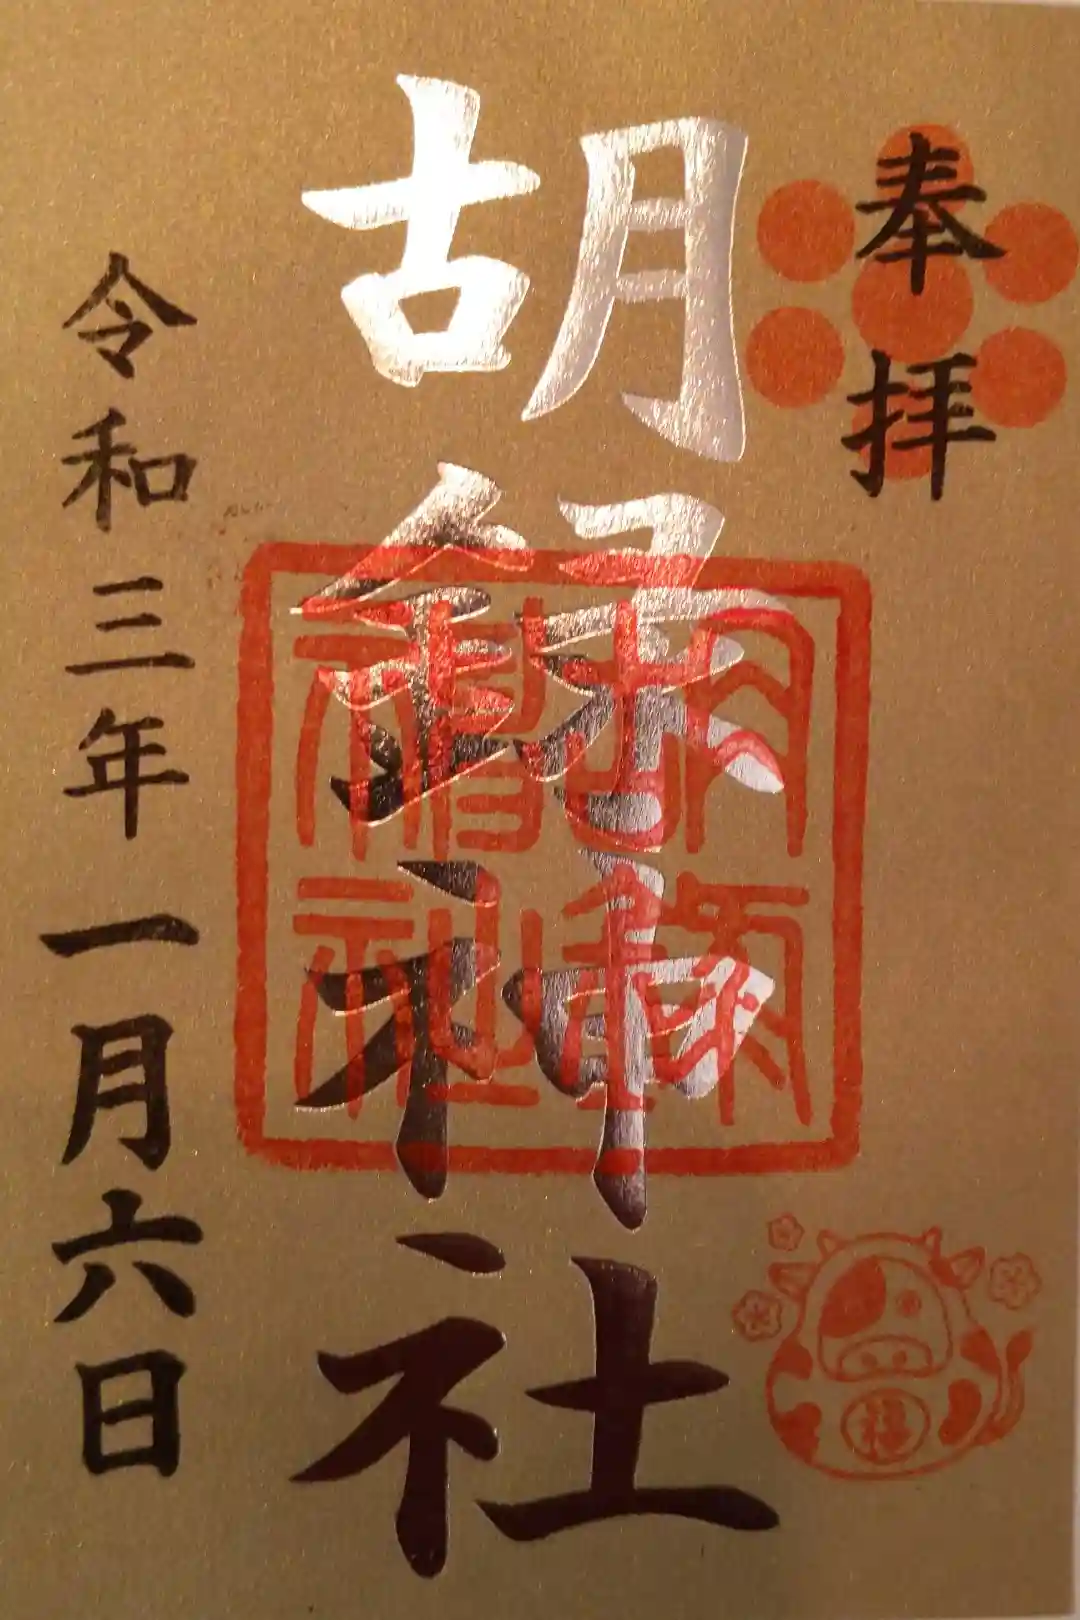 奉拝
胡録神社
胡録
神社
令和三年一月六日
福